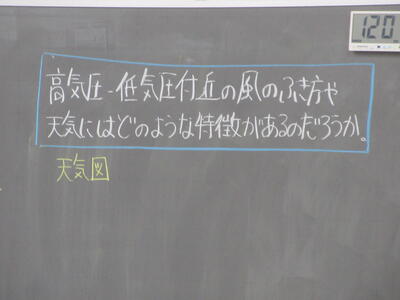 高気圧-低気圧付近の風のふき方や
天気にはどのような特徴があるのだろうか。
天気図
120